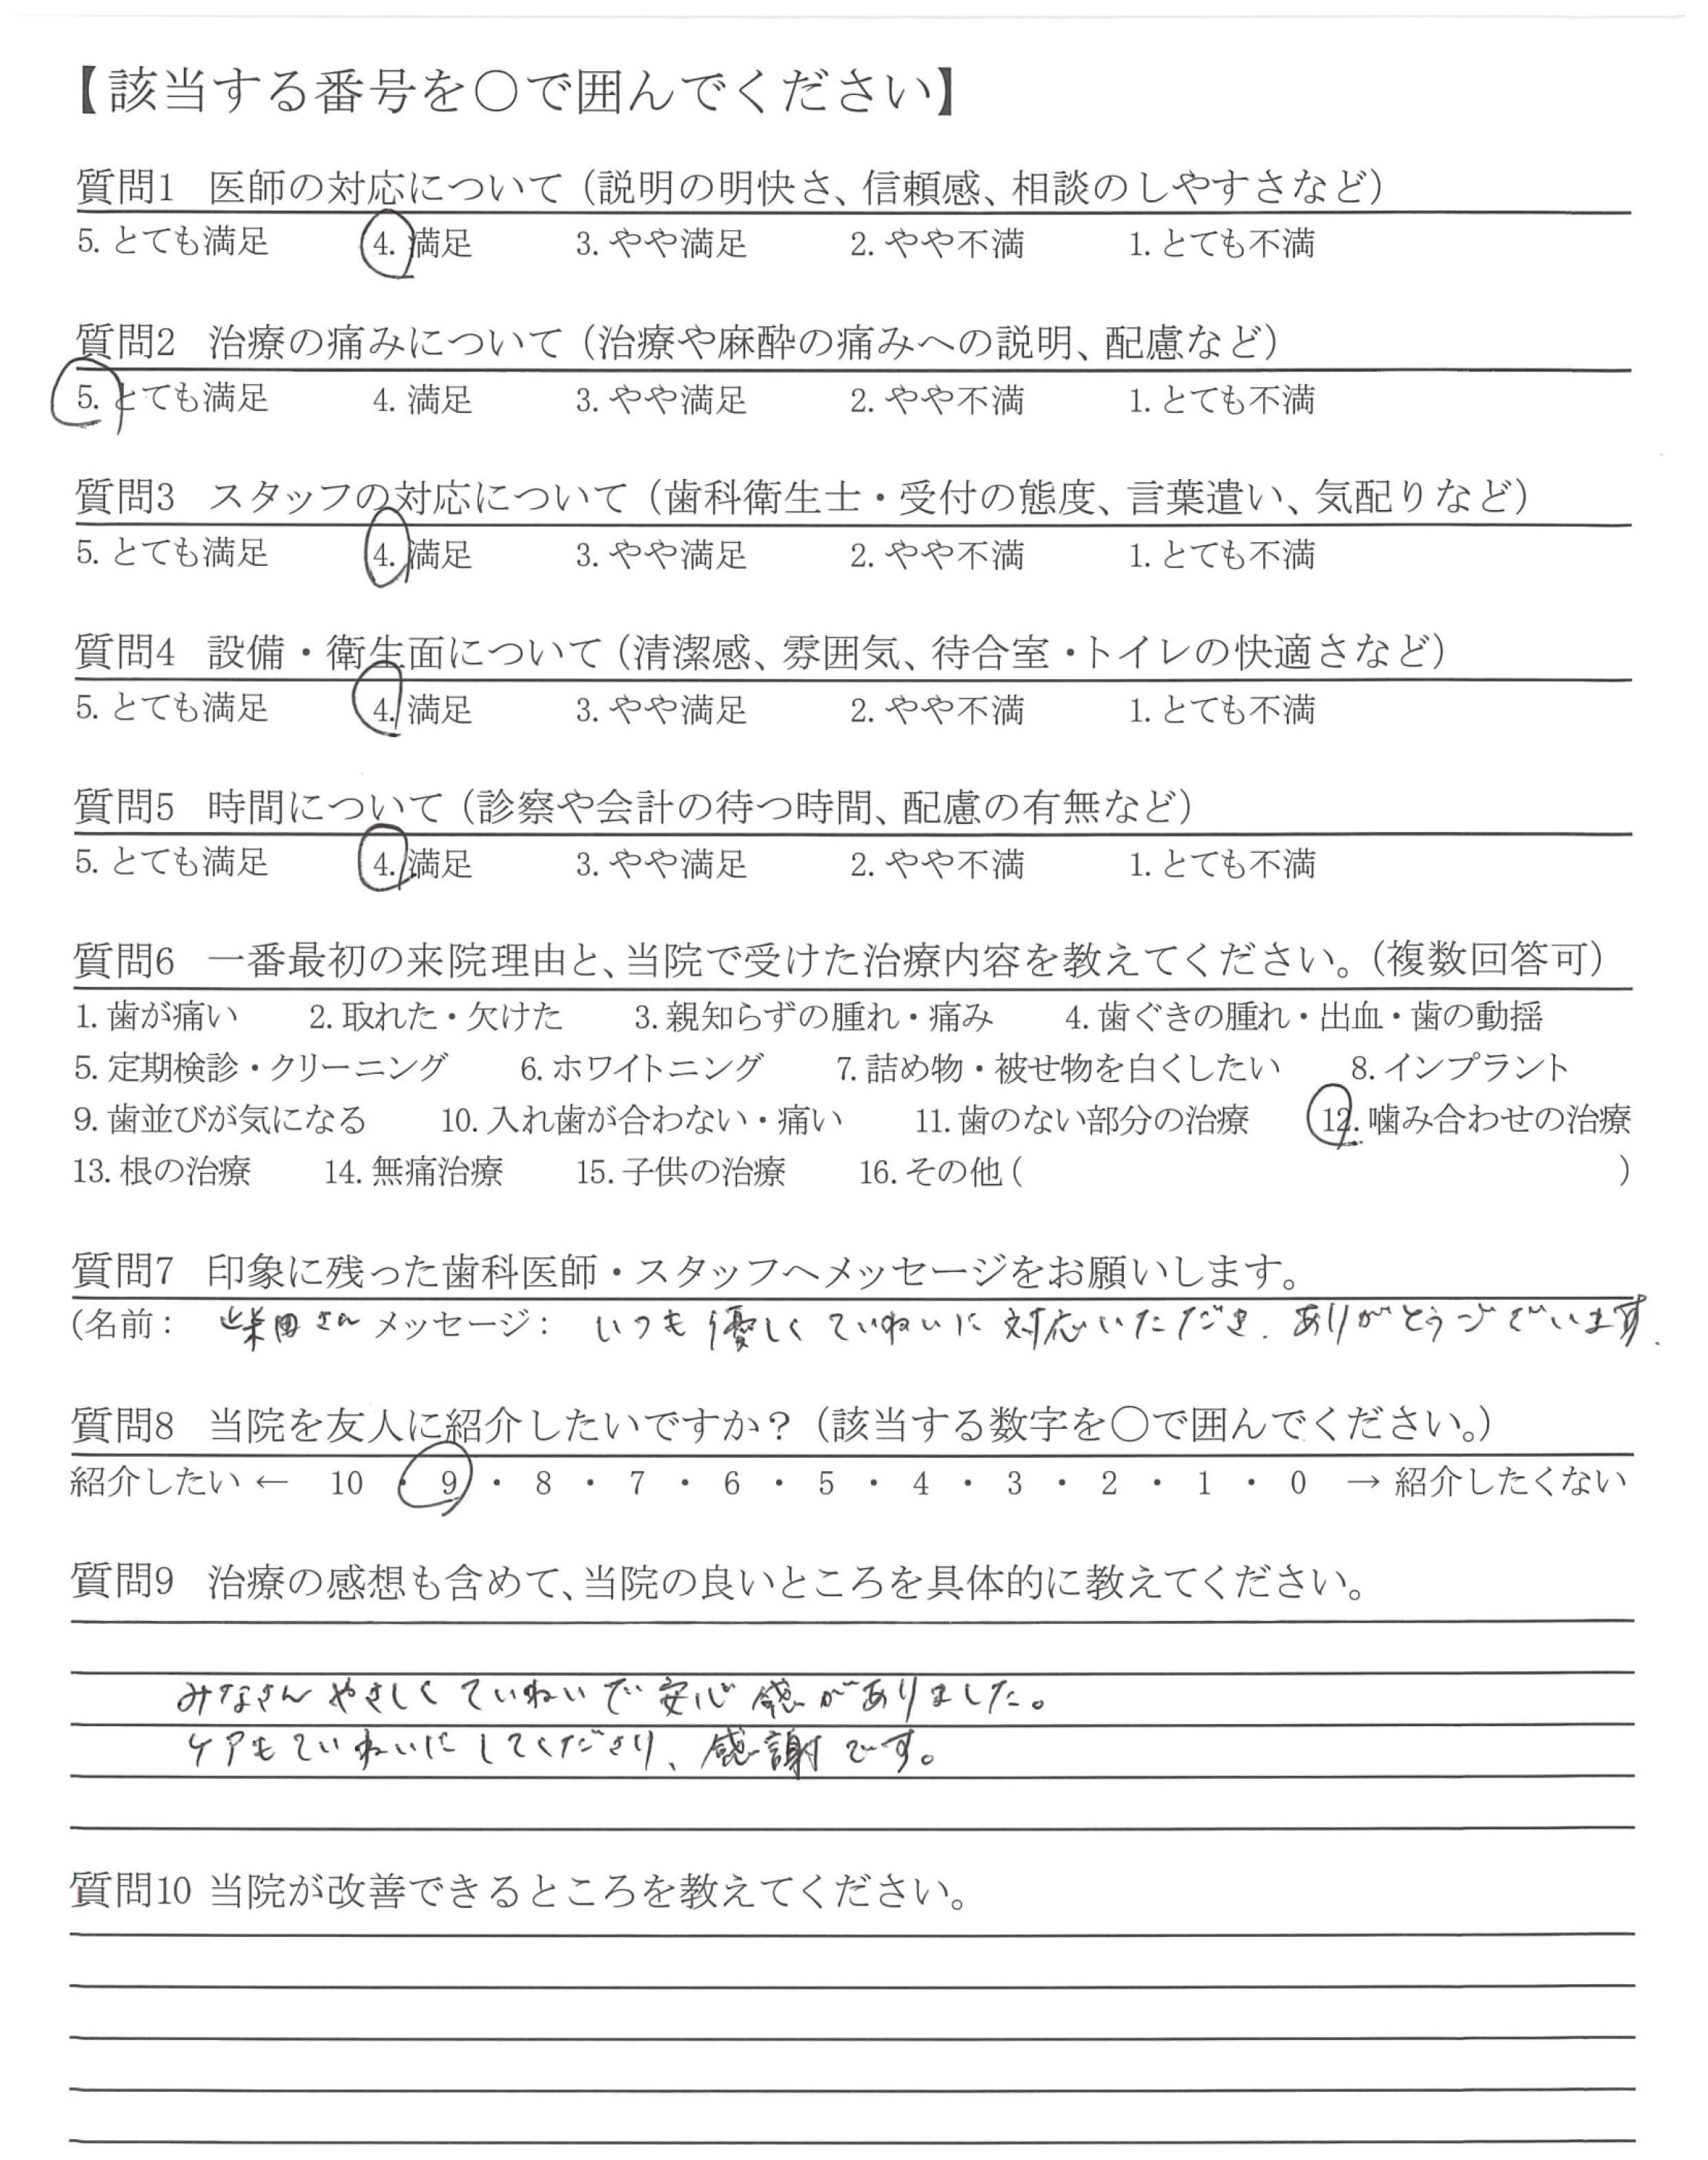 【該当する番号を○で囲んでください】
質問1 医師の対応について（説明の明快さ、信頼感、相談のしやすさなど）
5. とても満足 4. 満足 3. やや満足 2. やや不満 1. とても不満
質問2 治療の痛みについて（治療や麻酔の痛みへの説明、配慮など）
5. とても満足 4. 満足 3. やや満足 2. やや不満 1. とても不満
質問3 スタッフの対応について（歯科衛生士・受付の態度、言葉遣い、気配りなど）
5. とても満足 4. 満足 3. やや満足 2. やや不満 1. とても不満
質問4 設備・衛生面について（清潔感、雰囲気、待合室・トイレの快適さなど）
5. とても満足 4. 満足 3. やや満足 2. やや不満 1. とても不満
質問5 時間について（診察や会計の待つ時間、配慮の有無など）
5. とても満足 4. 満足 3. やや満足 2. やや不満 1. とても不満
質問6 一番最初の来院理由と、当院で受けた治療内容を教えてください。（複数回答可）
1. 歯が痛い 2. 取れた・欠けた 3. 親知らずの腫れ・痛み 4. 歯ぐきの腫れ・出血・歯の動揺
5. 定期検診・クリーニング 6. ホワイトニング 7. 詰め物・被せ物を白くしたい 8. インプラント
9. 歯並びが気になる 10. 入れ歯が合わない・痛い 11. 歯のない部分の治療 12. 噛み合わせの治療
13. 根の治療 14. 無痛治療 15. 子供の治療 16. その他（ ）
質問7 印象に残った歯科医師・スタッフへメッセージをお願いします。
（名前： 柴田さん メッセージ： いつも優しくていねいに対応いただき、ありがとうございます。
質問8 当院を友人に紹介したいですか？（該当する数字を○で囲んでください。）
紹介したい ← 10 ・ 9 ・ 8 ・ 7 ・ 6 ・ 5 ・ 4 ・ 3 ・ 2 ・ 1 ・ 0 → 紹介したくない
質問9 治療の感想も含めて、当院の良いところを具体的に教えてください。
みなさんやさしくていねいで安心感がありました。
ケアもていねいにしてくださり、感謝です。
質問10 当院が改善できるところを教えてください。